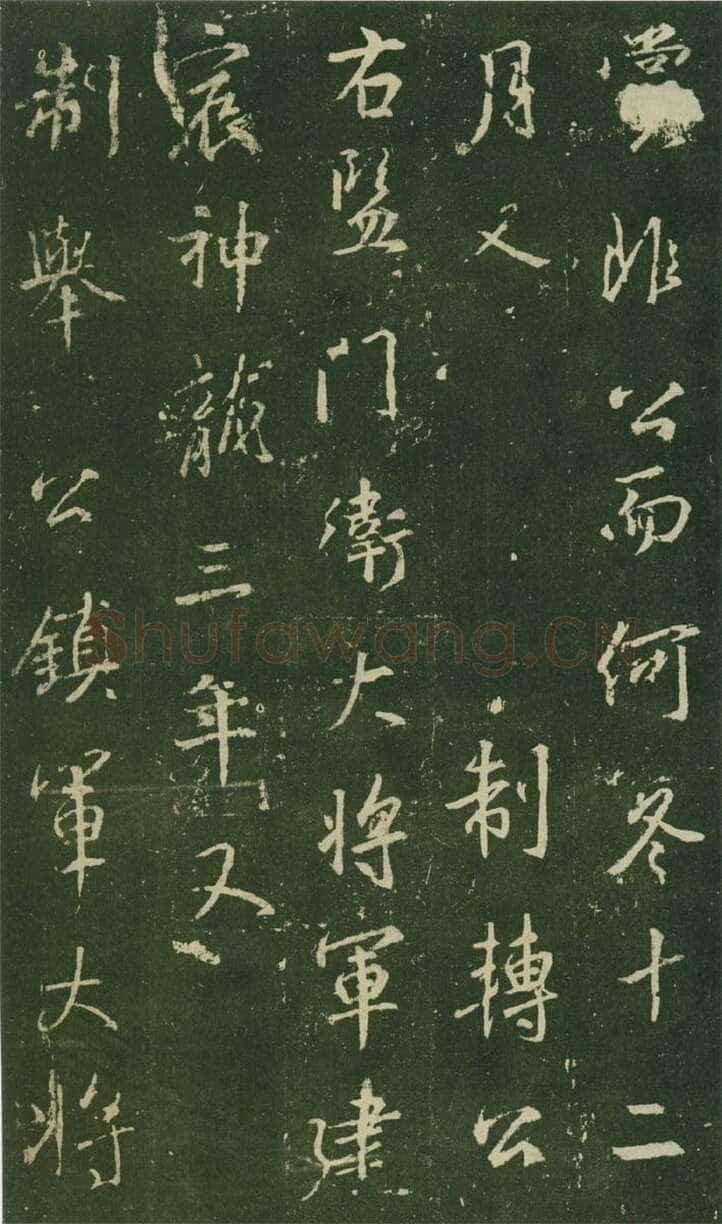 非公而何冬十二
月又 制轉公
右監門衛大將軍建
神龍三年又
制舉公鎮軍大將
Shufawang.CN